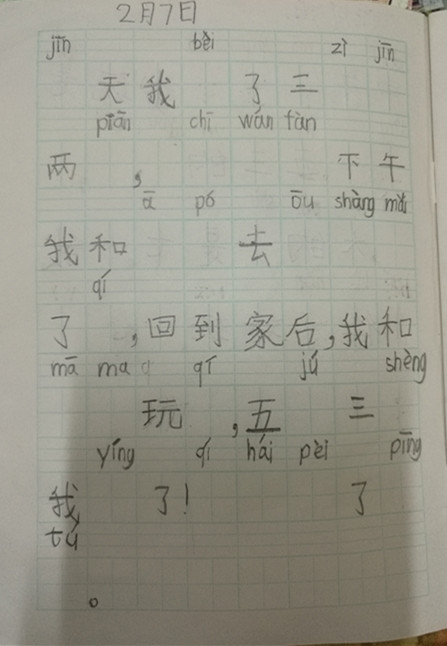 2月7日
jīn bèi zì jīn
天我 了三
piān chī wán fàn
两 , 下午
ā pó ōu shàng mǎi
我和 去
qí
了 ,回到家后,我和
mā ma qī jú shèng
玩 ,五 三
yíng qí hái pèi pīng
我 了! 了
tú
。